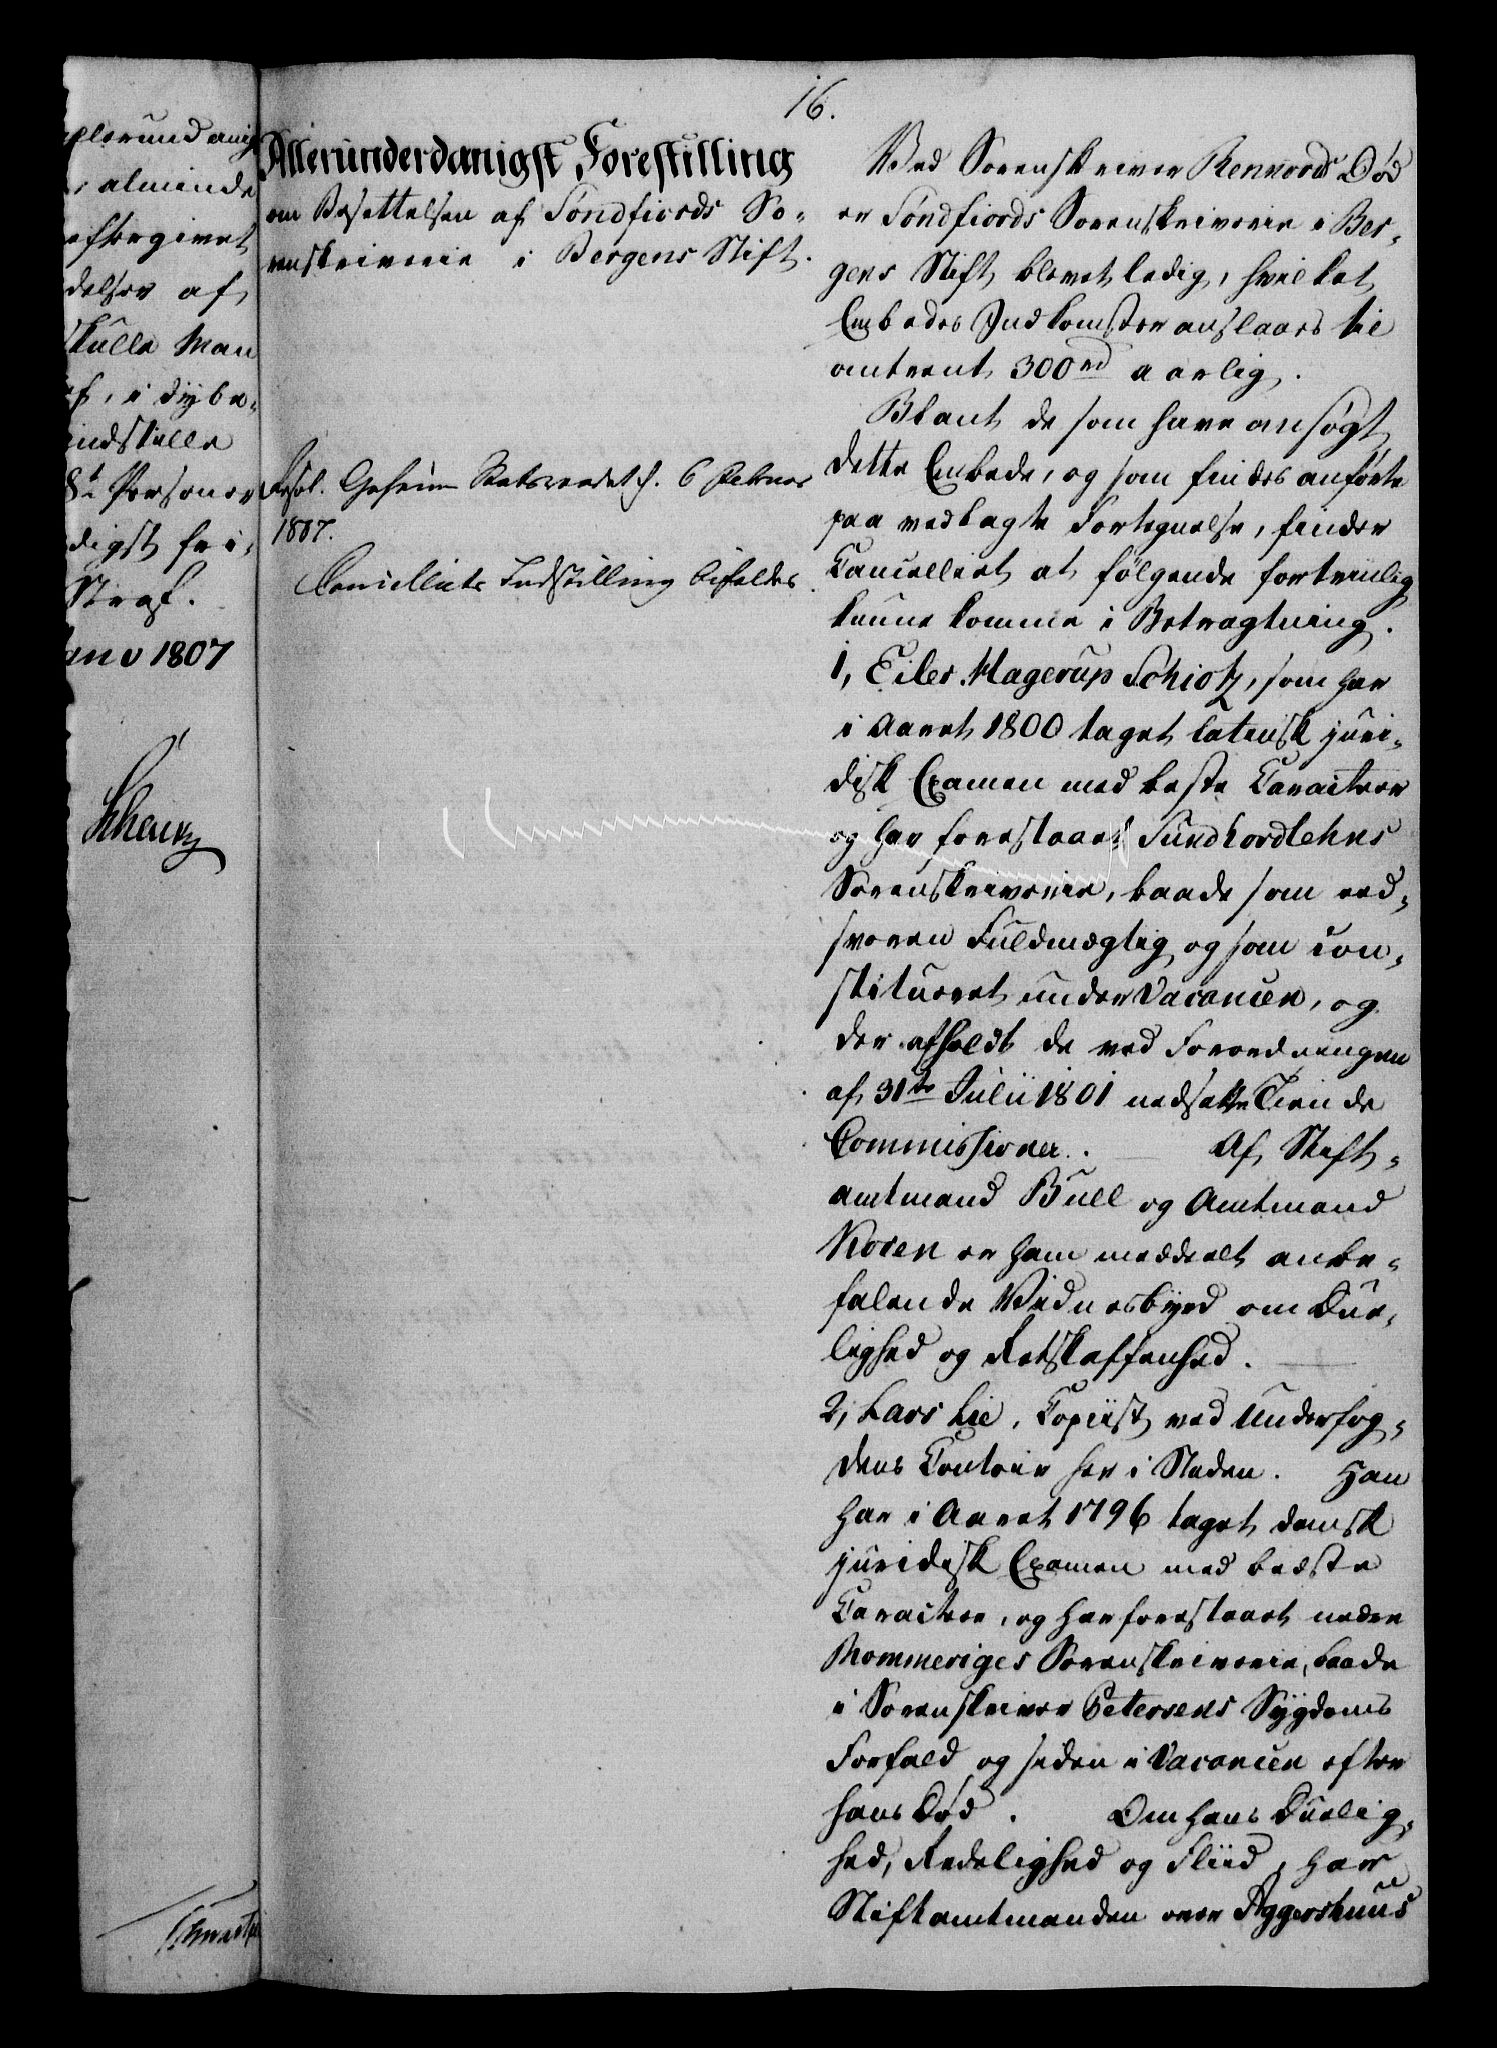 16.
Allerunderdanigst Forestilling
om Besettelsen af Søndfiords So-
renskriverie i Bergens Stift.
Resol. Geheime Statsraadet d. 6 Februar
1807.
Cancelliets Indstilling bifaldes.
Ved Sorenskriver Rennords Død
er Søndfiords Sorenskriverie i Ber-
gens Stift blevet ledig, hvilket
Embedes Indkomster anslaaes til
omtrent 300 rd aarlig.
Blant de som have ansøgt
dette Embede, og som findes anførte
paa vedlagte Fortegnelse, finder
Cancelliet at følgende fortrinlig
kunne komme i Betragtning.
1, Eiler Hagerup Schiøtz, som har
i Aaret 1800 taget latinsk juri-
disk Examen med beste Caracteer
og har forestaaet Sundhordlehns
Sorenskriverie, baade som eed-
svoren Fuldmægtig og som con-
stitueret under Vacancen, og
der afholdt de ved Forordningen
af 31te Julii 1801 nedsatte Tiende
Commissioner. Af Stift-
amtmand Bull og Amtmand
Koren er ham meddeelt anbe-
falende Vidnesbyrd om Due-
lighed og Retskaffenhed.
2, Lars Lie, Copiist ved Underfog-
dens Contoir her i Staden. Han
har i Aaret 1796 taget dansk
juridisk Examen med bedste
Caracteer, og har forestaaet nedre
Rommeriges Sorenskriverie, baade
i Sorenskriver Petersens Sygdoms
Forfald og siden i Vacancen efter
hans Død. Om hans Duelig-
hed, Redelighed og Fliid, har
Stiftamtmanden over Aggershuus
allerunderdanig
alminde
eftergivet
delser af
skulle Man
af, i dybe-
indstille
Personer
digst fri-
Straf.
Janv 1807